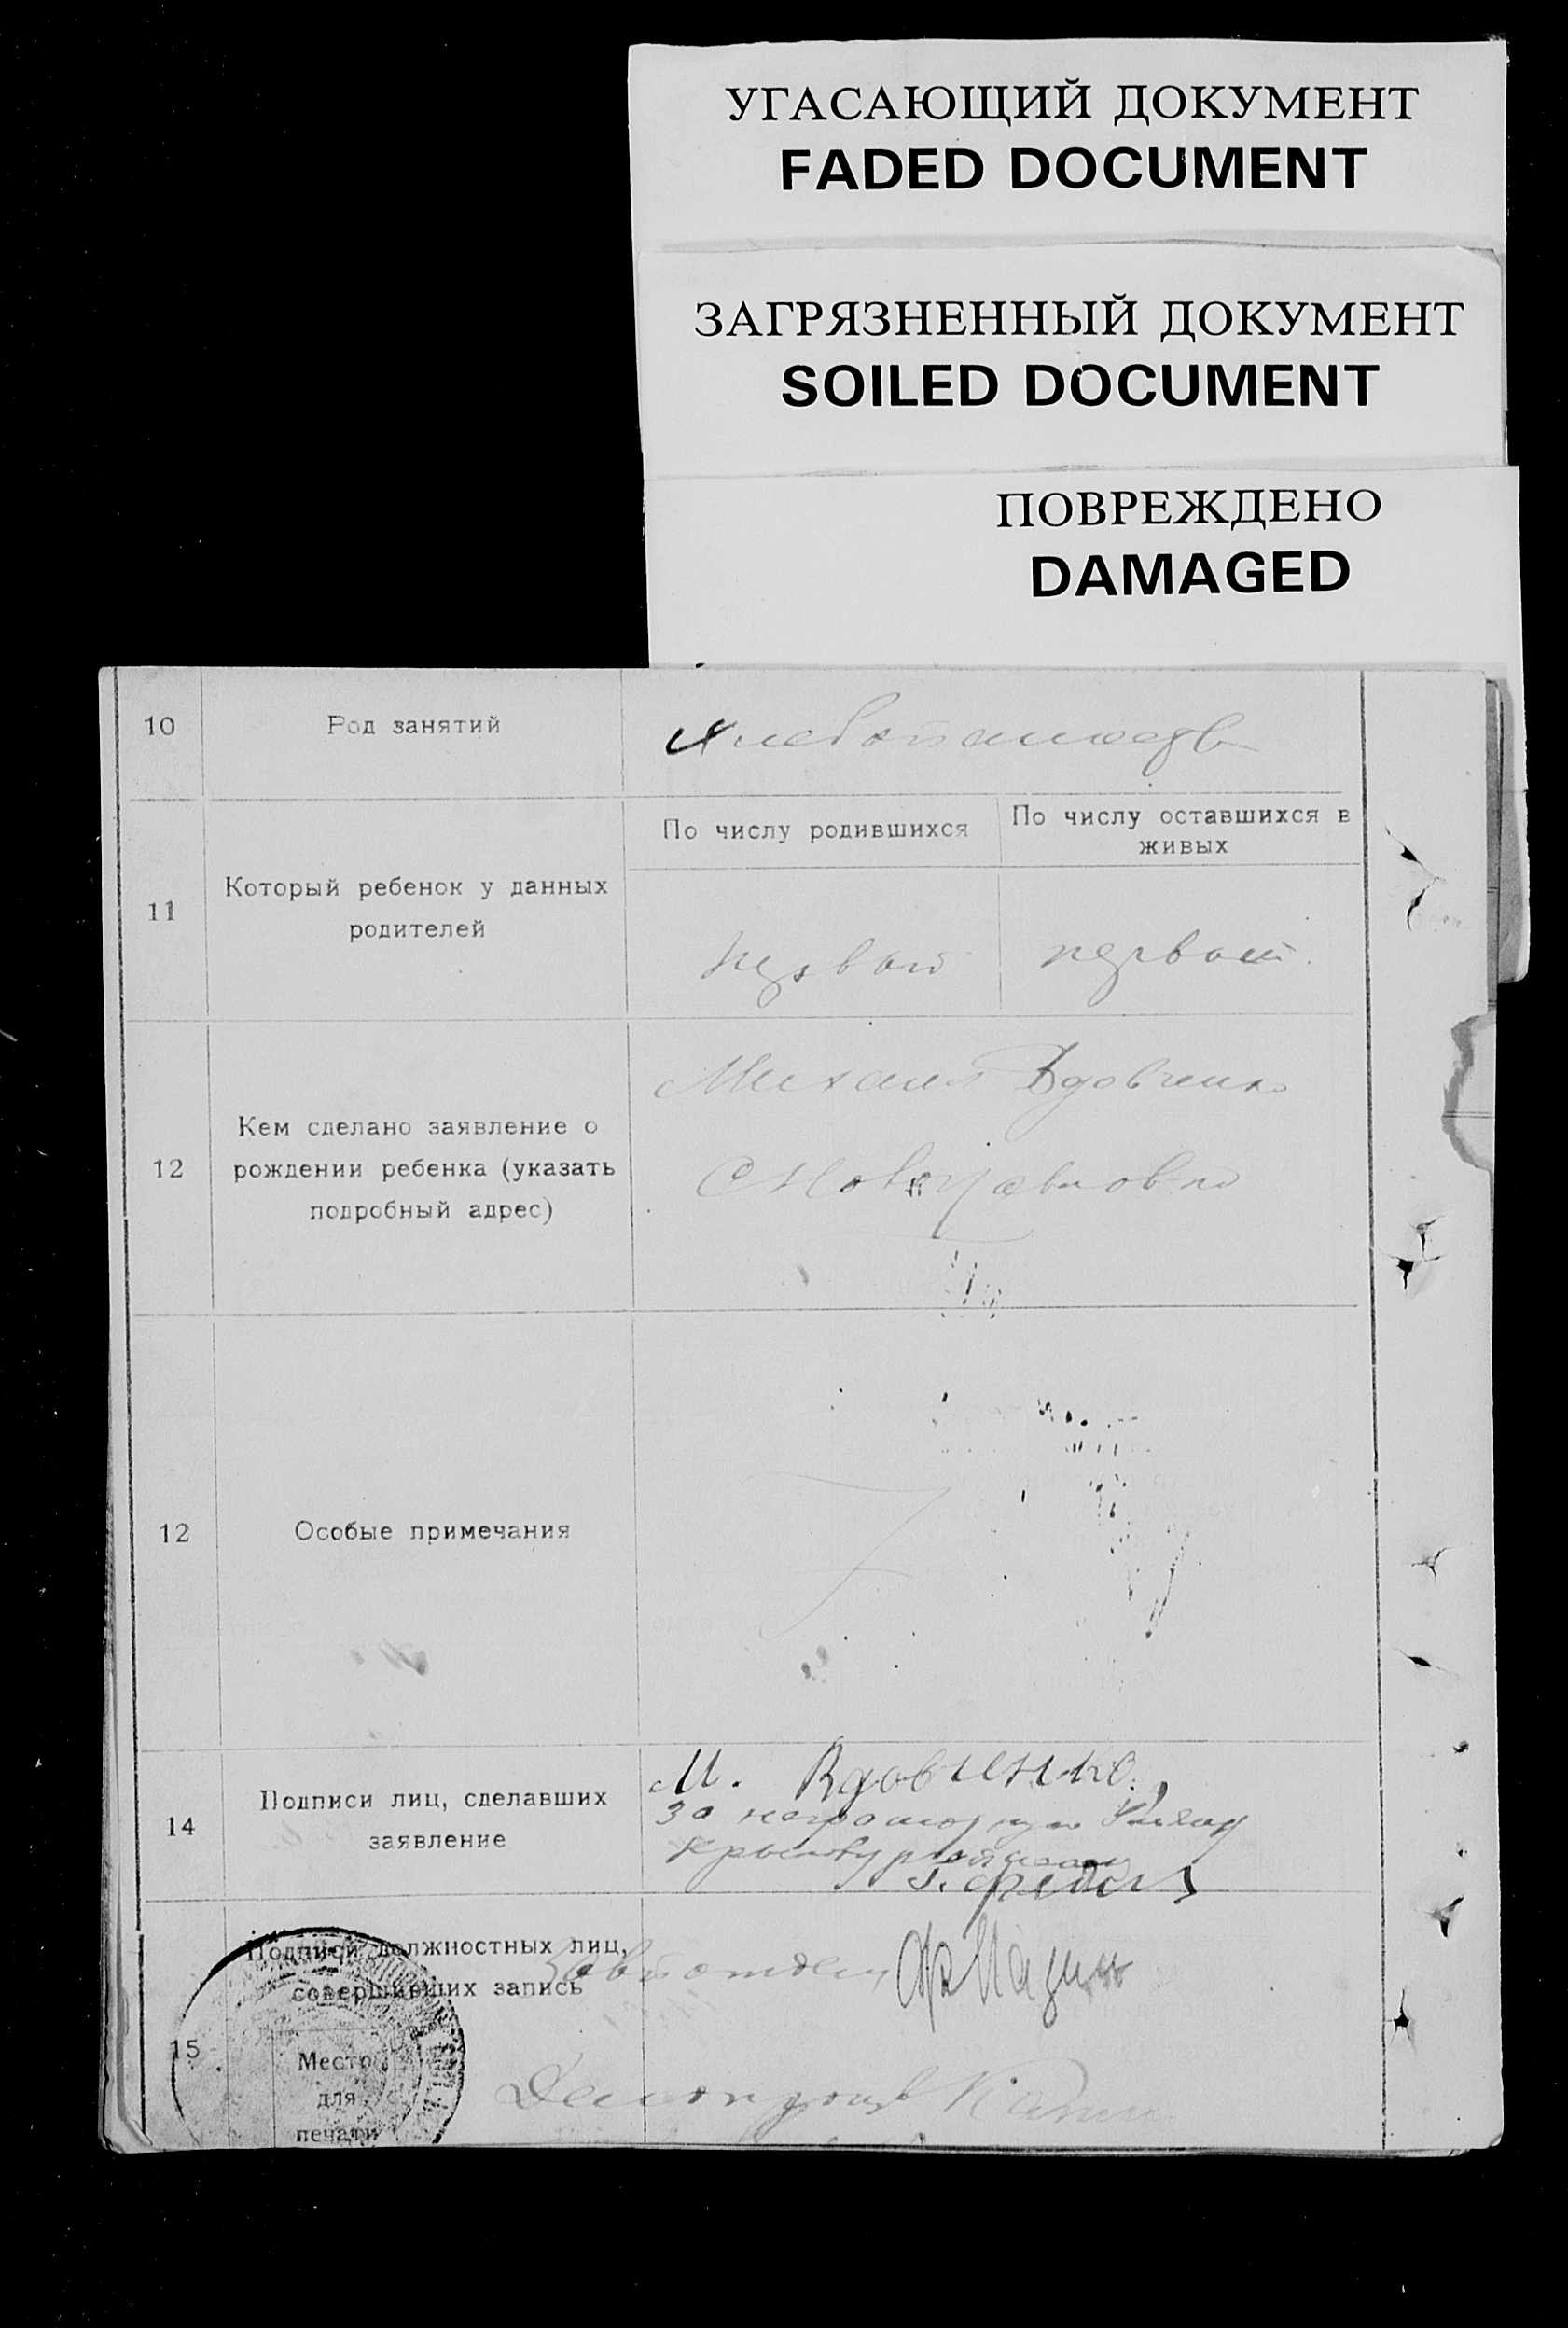 УГАСАЮЩИЙ ДОКУМЕНТ
FADED DOCUMENT
ЗАГРЯЗНЕННЫЙ ДОКУМЕНТ
SOILED DOCUMENT
ПОВРЕЖДЕНО
DAMAGED
10
Род занятий
11
Который ребенок у данных
родителей
По числу родившихся
По числу оставшихся в
живых
первый
первый.
12
Кем сделано заявление о
рождении ребенка (указать
подробный адрес)
Михаил Вдовченко
12
Особые примечания
14
Подписи лиц, сделавших
заявление
М. Вдовиченко.
за неграмотную
15
Подписи должностных лиц,
совершивших запись
Место
для
печати